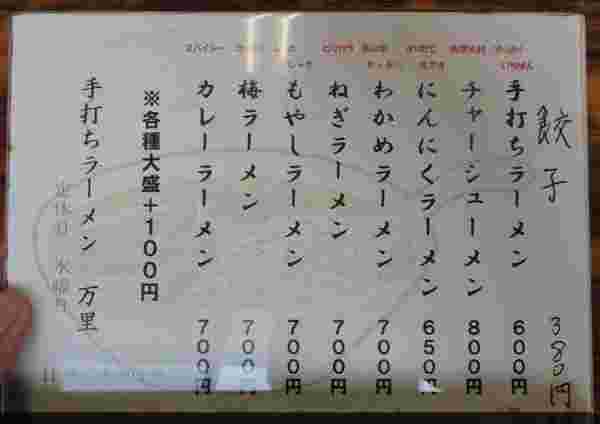 餃子 380円
手打ちラーメン 600円
チャーシューメン 800円
にんにくラーメン 650円
わかめラーメン 700円
ねぎラーメン 700円
もやしラーメン 700円
梅ラーメン 700円
カレーラーメン 700円
スパイシー
※各種大盛+100円
手打ちラーメン 万里
定休日 水曜日